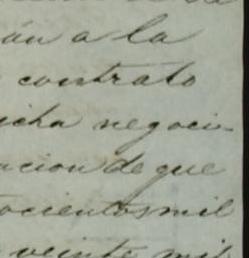 ón a la
contrato
icha negocia-
acion de que
ocientos mil
veinte mil